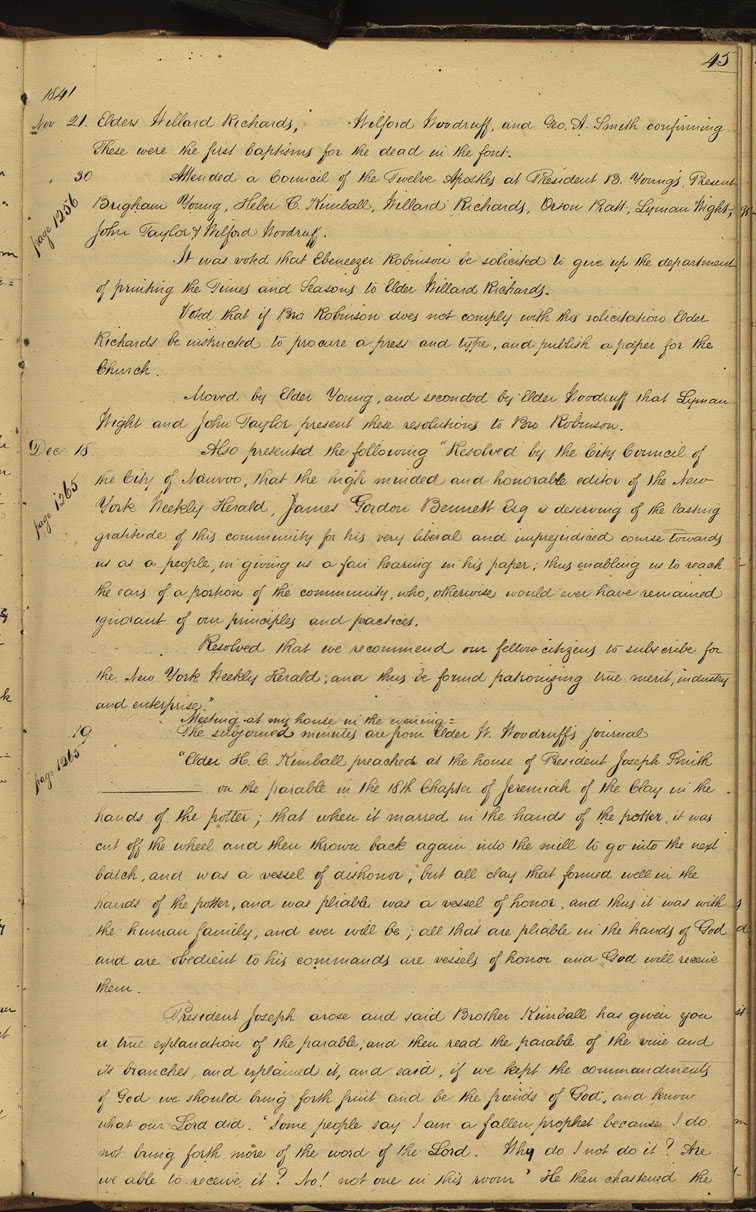 45
1841
Nov 21. Elders Willard Richards, Wilford Woodruff, and Geo. A. Smith confirming
These were the first baptisms for the dead in the font.
" 30 Attended a Council of the Twelve Apostles at President B. Young's. Present
page 1256 Brigham Young, Heber C. Kimball, Willard Richards, Orson Pratt, Lyman Wight,
John Taylor & Wilford Woodruff.
It was voted that Ebeneezer Robinson be solicited to give up the department
of printing the Times and Seasons to Elder Willard Richards.
Voted that if Bro Robinson does not comply with this solicitation Elder
Richards be instructed to procure a press and type, and publish a paper for the
Church.
Moved by Elder Young, and seconded by Elder Woodruff that Lyman
Wight and John Taylor present these resolutions to Bro Robinson.
Dec 18 Also presented the following "Resolved by the City Council of
the City of Nauvoo, that the high minded and honorable editor of the New
page 1265 York Weekly Herald, James Gordon Bennett Esq is deserving of the lasting
gratitude of this community for his very liberal and unprejudiced course towards
us as a people, in giving us a fair hearing in his paper; thus enabling us to reach
the ears of a portion of the community, who, otherwise would ever have remained
ignorant of our principles and practices.
Resolved that we recommend our fellow citizens to subscribe for
the New York Weekly Herald; and thus be found patronizing true merit, industry
and enterprise."
Meeting at my house in the evening =
19 The subjoined minutes are from Elder W. Woodruff's journal
page 1265 "Elder H. C. Kimball preached at the house of President Joseph Smith
on the parable in the 18th Chapter of Jeremiah of the Clay in the
hands of the potter; that when it marred in the hands of the potter it was
cut off the wheel and then thrown back again into the mill to go into the next
batch, and was a vessel of dishonor; but all clay that formed well in the
hands of the potter, and was pliable was a vessel of honor, and thus it was with
the human family, and ever will be; all that are pliable in the hands of God
and are obedient to his commands are vessels of honor and God will receive
them.
President Joseph arose and said Brother Kimball has given you
a true explanation of the parable, and then read the parable of the vine and
its branches, and explained it, and said, if we kept the commandments
of God we should bring forth fruit and be the friends of God, and know
what our Lord did. "Some people say I am a fallen prophet because I do
not bring forth more of the word of the Lord. Why do I not do it? Are
we able to receive it? No! not one in this room" He then chastened the